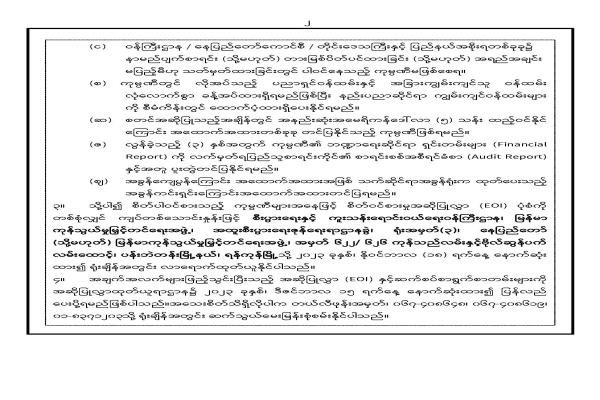 ၂
(င) ဝန်ကြီးဌာန / နေပြည်တော်ကောင်စီ / တိုင်းဒေသကြီးနှင့် ပြည်နယ်အစိုးရတစ်ခုခု၌
နာမည်ပျက်စာရင်း (သို့မဟုတ်) တားမြစ်ပိတ်ပင်ထားခြင်း (သို့မဟုတ်) အရည်အချင်း
မပြည့်မီဟု သတ်မှတ်ထားခြင်းတွင် ပါဝင်နေသည့် ကုမ္ပဏီမဖြစ်စေရ။
(စ) ကုမ္ပဏီတွင် လိုအပ်သည့် ပညာရှင်ဝန်ထမ်းနှင့် အခြားကျွမ်းကျင်သူ ဝန်ထမ်း
လုံလောက်စွာ ခန့်အပ်ထားရှိရမည်ဖြစ်ပြီး၊ နည်းပညာဆိုင်ရာ ကျွမ်းကျင်ဝန်ထမ်းများ
ကို စီမံကိန်းတွင် ထောက်ပံ့ထားရှိပေးနိုင်ရမည်။
(ဆ) စတင်အဆိုပြုသည့်အချိန်တွင် အနည်းဆုံးအမေရိကန်ဒေါ်လာ (၅) သန်း ထည့်ဝင်နိုင်
ကြောင်း အထောက်အထားတစ်ခုခု တင်ပြနိုင်သည့် ကုမ္ပဏီဖြစ်ရမည်။
(ဇ) လွန်ခဲ့သည့် (၃) နှစ်အတွက် ကုမ္ပဏီ၏ ဘဏ္ဍာရေးဆိုင်ရာ ရှင်းတမ်းများ (Financial
Report) ကို လက်မှတ်ရပြည်သူ့စာရင်းကိုင်၏ စာရင်းစစ်အစီရင်ခံစာ (Audit Report)
နှင့်အတူ ပူးတွဲတင်ပြနိုင်ရမည်။
(ဈ) အခွန်ကျေပွန်ကြောင်း အထောက်အထားအဖြစ် သက်ဆိုင်ရာအခွန်ရုံးက ထုတ်ပေးသည့်
အခွန်ကင်းရှင်းကြောင်းအထောက်အထားတင်ပြရမည်။
၃။ သို့ပါ၍ စိတ်ပါဝင်စားသည့် ကုမ္ပဏီများအနေဖြင့် စိတ်ဝင်စားမှုအဆိုပြုလွှာ (EOI) ပုံစံကို
တစ်စုံလျှင် ကျပ်တစ်သောင်းနှုန်းဖြင့် စီးပွားရေးနှင့် ကူးသန်းရောင်းဝယ်ရေးဝန်ကြီးဌာန၊ မြန်မာ
ကုန်သွယ်မှုမြှင့်တင်ရေးအဖွဲ့၊ အထူးစီးပွားရေးဇုန်ရေးရာဌာနခွဲ၊ ရုံးအမှတ်(၃)၊ နေပြည်တော်
(သို့မဟုတ်) မြန်မာကုန်သွယ်မှုမြှင့်တင်ရေးအဖွဲ့၊ အမှတ် ၆၂၂/ ၆၂၆ ကုန်သည်လမ်းနှင့်ဗိုလ်ဆွန်ပက်
လမ်းထောင့်၊ ပန်းဘဲတန်းမြို့နယ်၊ ရန်ကုန်မြို့သို့ ၂၀၂၃ ခုနှစ်၊ နိုဝင်ဘာလ (၁၈) ရက်နေ့ နောက်ဆုံး
ထား၍ ရုံးချိန်အတွင်း လာရောက်ထုတ်ယူနိုင်ပါသည်။
၄။ အချက်အလက်များဖြည့်သွင်းပြီးသည့် အဆိုပြုလွှာ (EOI) နှင့်ဆက်စပ်စာရွက်စာတမ်းများကို
အဆိုပြုလွှာထုတ်ယူရာဌာန၌ ၂၀၂၃ ခုနှစ်၊ ဒီဇင်ဘာလ ၁၅ ရက်နေ့ နောက်ဆုံးထား၍ ပြန်လည်
ပေးပို့ရမည်ဖြစ်ပါသည်။အသေးစိတ်သိရှိလိုပါက တယ်လီဖုန်းအမှတ်၊ ၀၆၇-၄၀၈၆၄၈၊ ၀၆၇-၄၀၈၆၁၉၊
၀၁-၈၃၇၁၂၀၃သို့ ရုံးချိန်အတွင်း ဆက်သွယ်မေးမြန်းစုံစမ်းနိုင်ပါသည်။